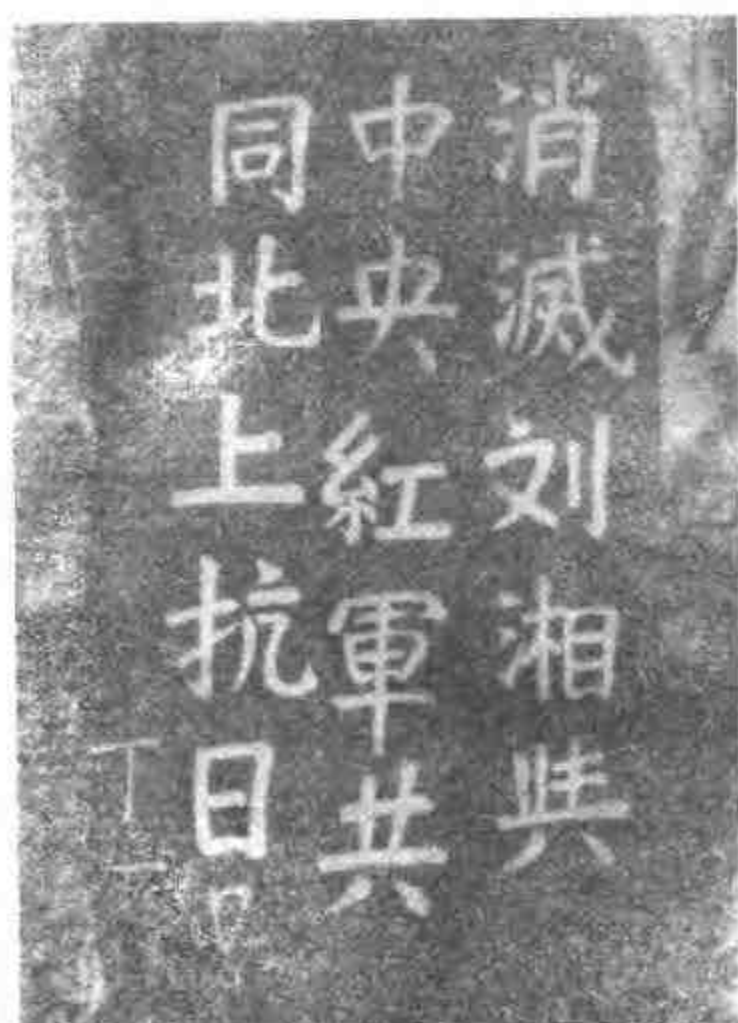 消滅刘湘兴
中央紅軍共
同北上抗日